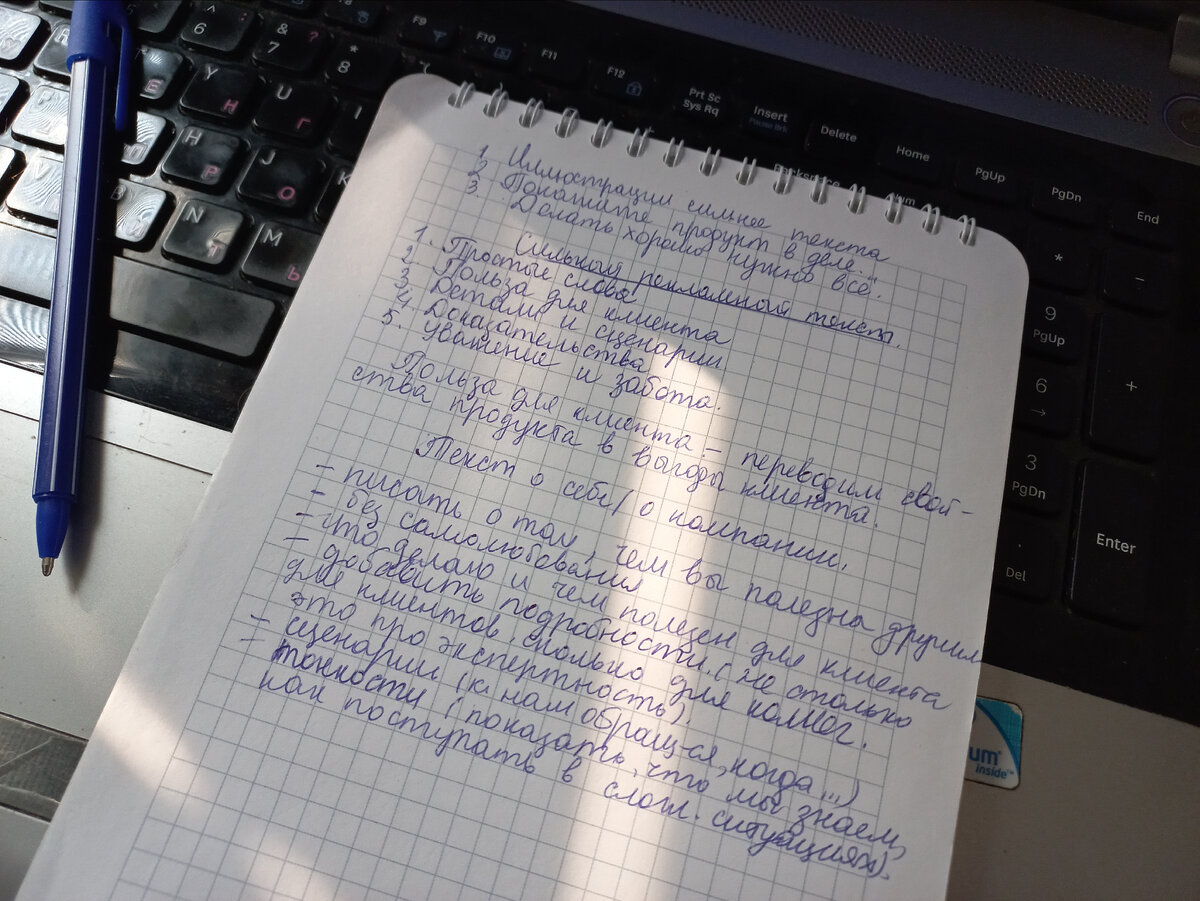 1. Иллюстрации сильнее текста
2. Покажите продукт в деле.
3. Делать хорошо нужно всё.
Сильный рекламный текст.
1. Простые слова
2. Польза для клиента
3. Детали и сценарии
4. Доказательства
5. Уважение и забота.
Польза для клиента – переводим свой-
ства продукта в выгоды клиента.
Текст о себе/о компании.
– писать о том, чем вы полезны другим
– без самолюбования
– что делаю и чем полезен для клиента
– добавить подробности. (не столько
для клиентов, сколько для коллег.
это про экспертность).
– сценарии (к нам обращ-ся, когда...)
– тонкости (показать, что мы знаем,
как поступать в слож. ситуациях).
^ 6
& 7 ?
* 8
F9
F10
F11
F12
Prt Sc
Sys Rq
Insert
Delete
Home
PgUp
PgDn
End
Backspace
Y Н
U Г
I
H Р
J О
K
N Т
M Ь
B
*
–
9
PgUp
6
→
+
3
PgDn
.
Del
Enter
um
inside™